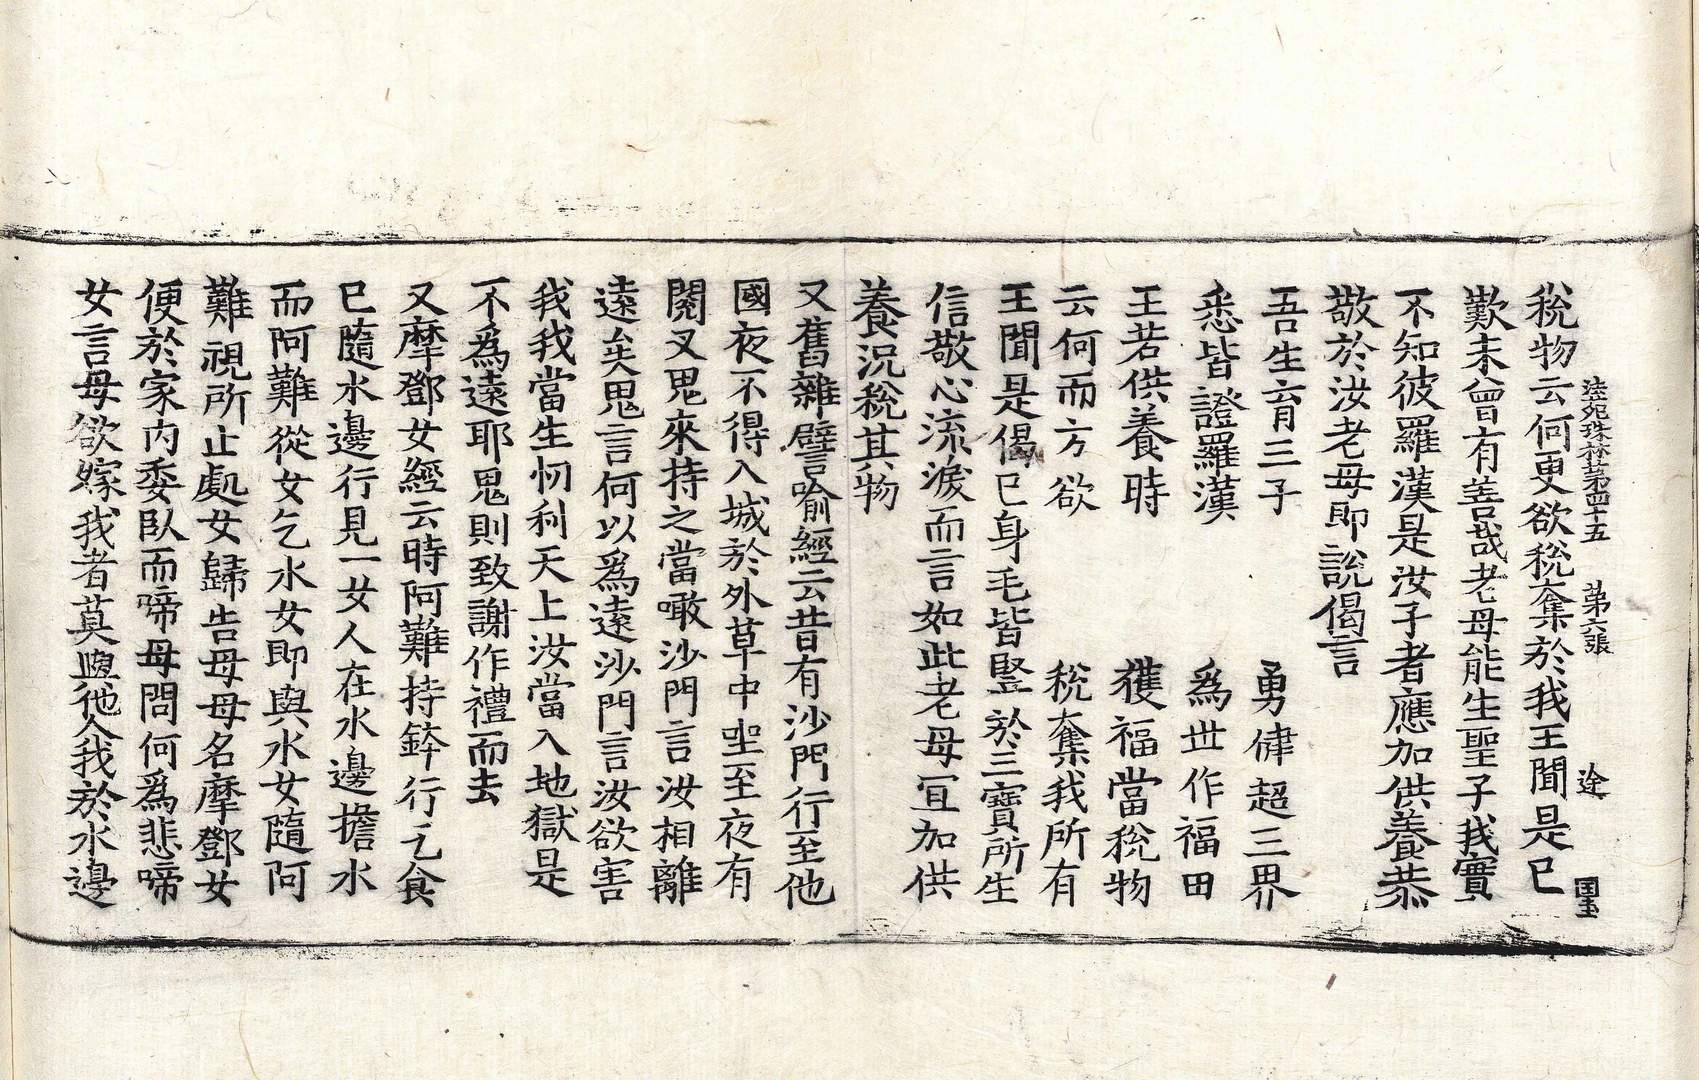 法苑珠林第四十五 第六張 塗 国玉
稅物云何更欲稅奪於我王聞是已
歎未曾有善哉老母能生聖子我實
不知彼羅漢是汝子者應加供養恭
敬於汝老母即說偈言
吾生育三子 勇健超三界
悉皆證羅漢 爲世作福田
王若供養時 獲福當稅物
云何而方欲 稅奪我所有
王聞是偈已身毛皆豎於三寶所生
信敬心流淚而言如此老母宜加供
養況稅其物
又舊雜譬喻經云昔有沙門行至他
國夜不得入城於外草中坐至夜有
閱叉鬼來持之當噉沙門言汝相離
遠矣鬼言何以爲遠沙門言汝欲害
我我當生忉利天上汝當入地獄是
不爲遠耶鬼則致謝作禮而去
又摩鄧女經云時阿難持鉢行乞食
已隨水邊行見一女人在水邊擔水
而阿難從女乞水女即與水女隨阿
難視所止處女歸告母母名摩鄧女
便於家內委臥而啼母問何爲悲啼
女言母欲嫁我者莫與他人我於水邊